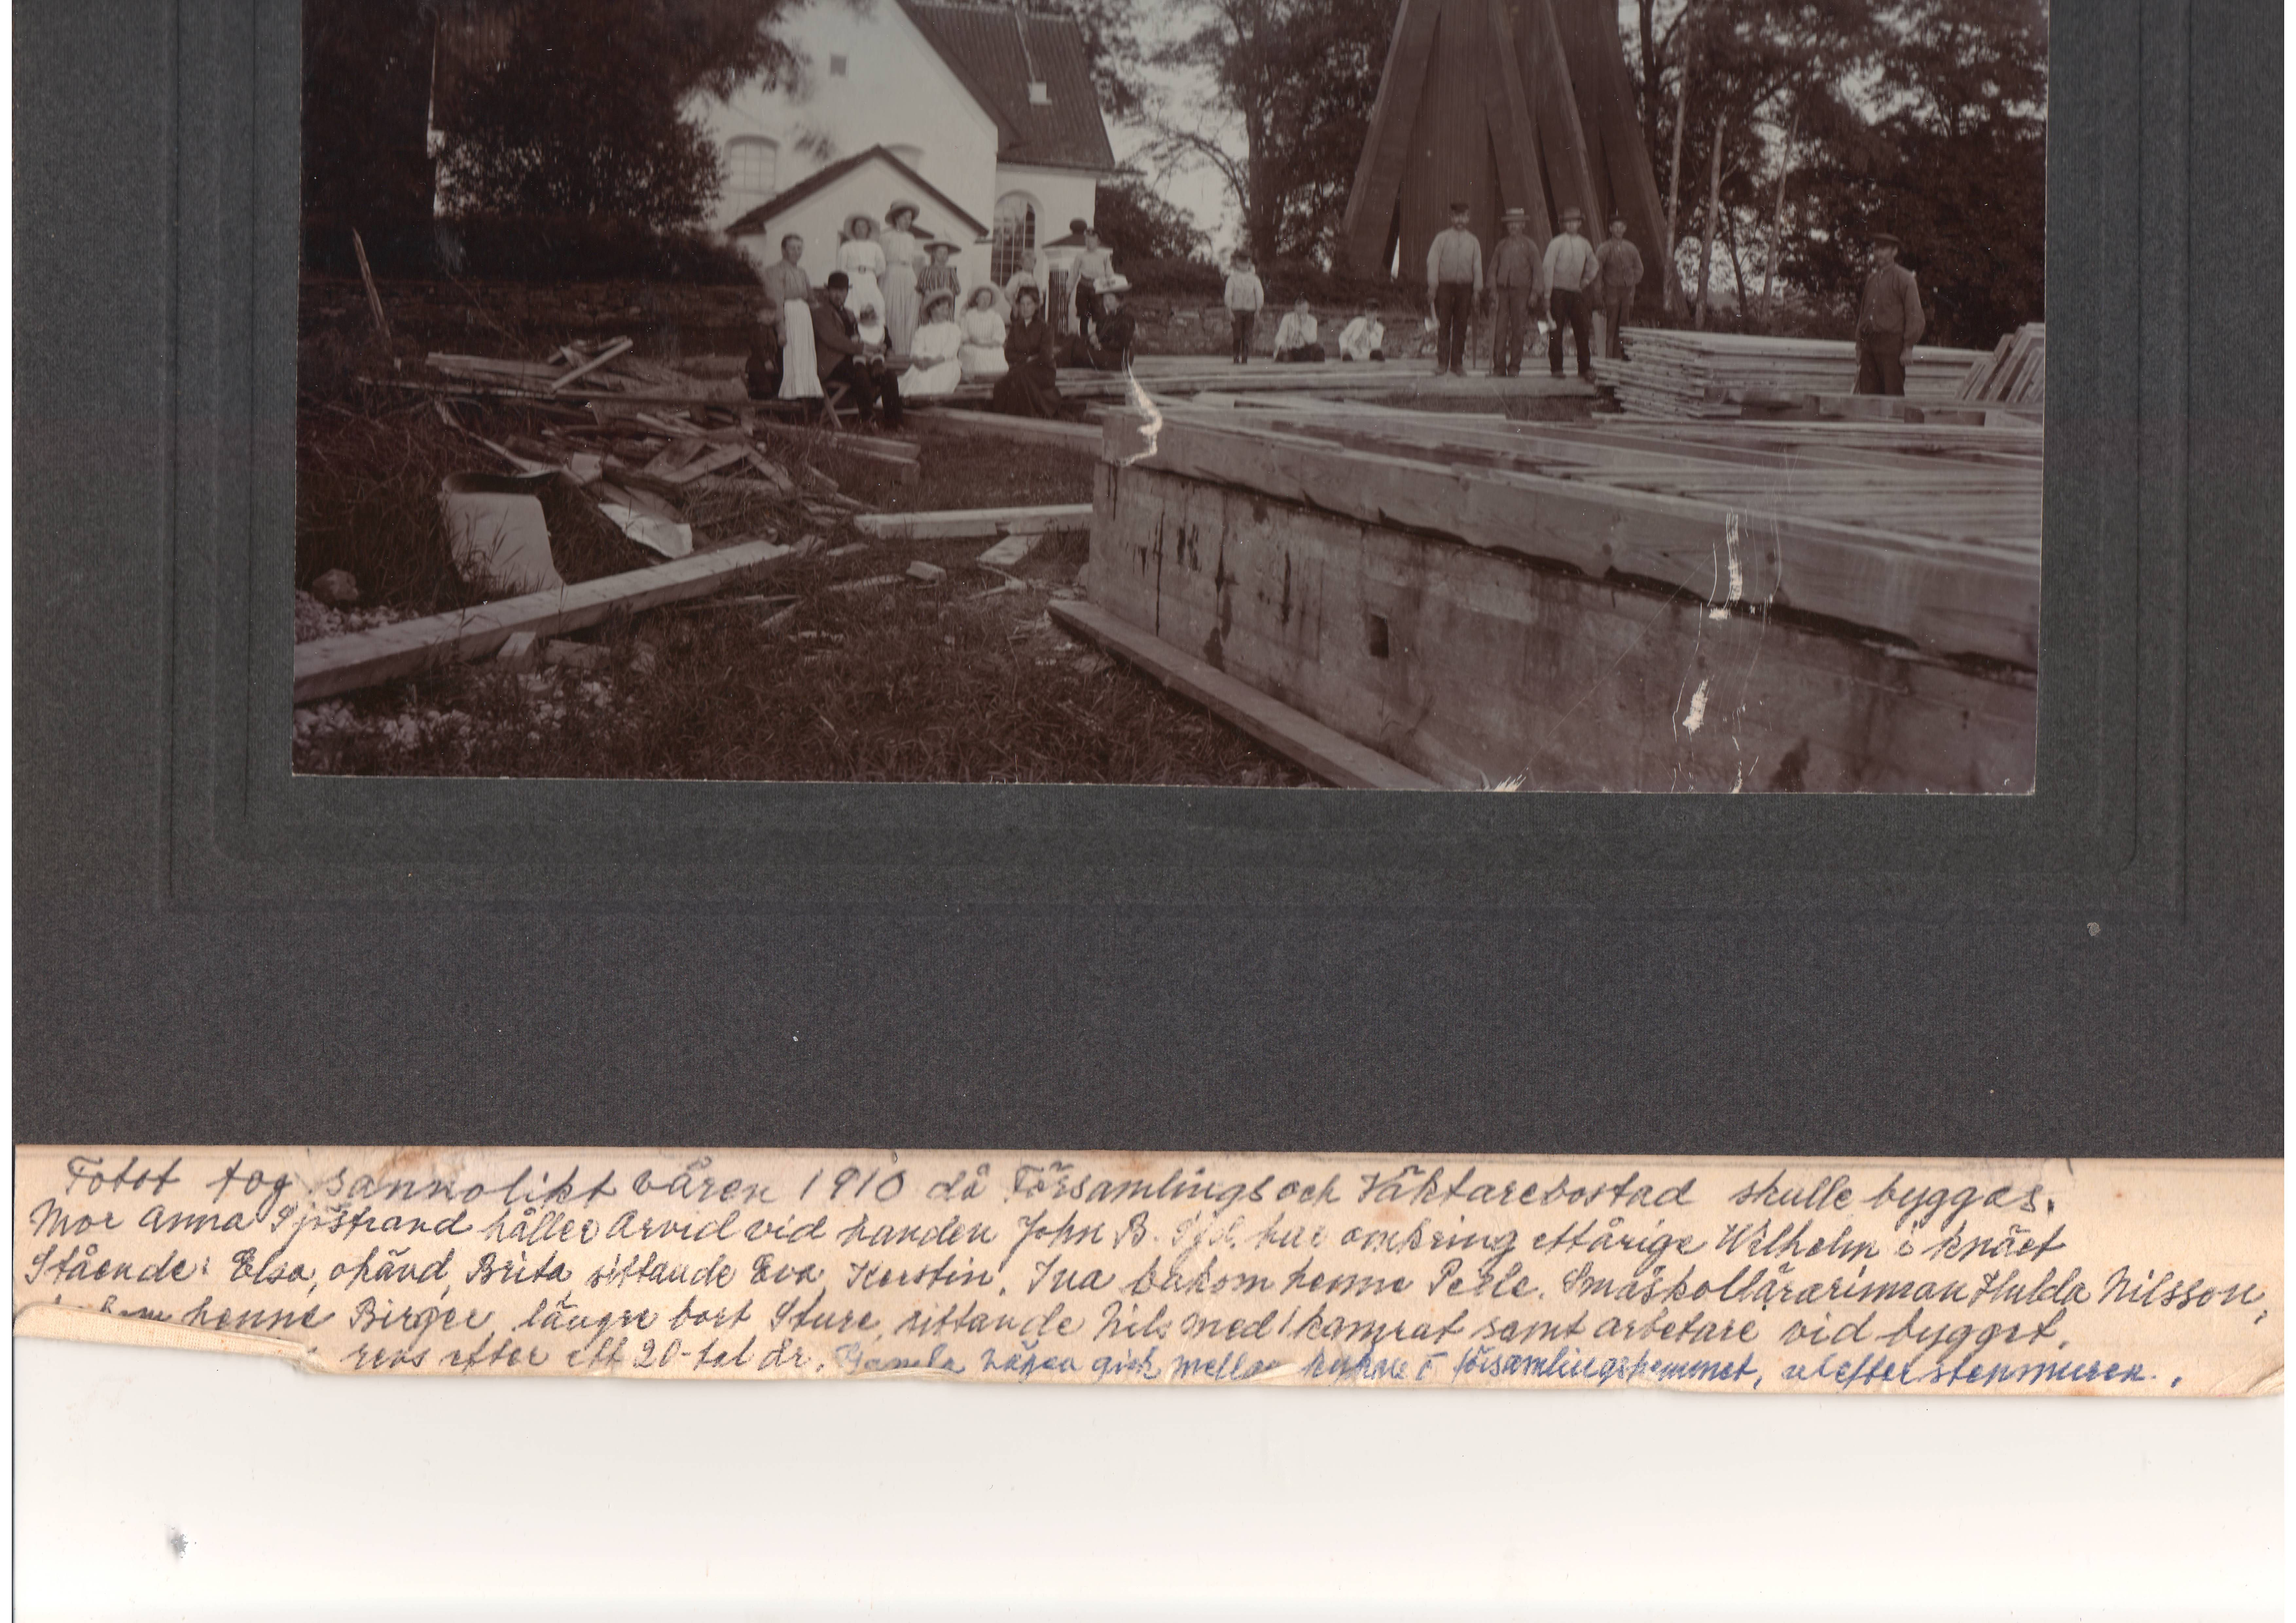 Fotot tog sannolikt våren 1910 då Församlings och Väktarebostad skulle byggas.
Mor Anna Sjöstrand håller Arvid vid handen John B. Sjd. har omkring ettårige Wilhelm i knäet
Stående: Elsa, okänd, Brita, sittande Eva, Kerstin. Ina bakom henne Pelle. Småskollärarinnan Hulda Nilsson,
henne Birger, längre bort Sture, sittande Nils med 1 kamrat samt arbetare vid bygget.
revs efter ett 20-tal år. Gamla vägen gick mellan kyrkan o församlingshemmet, utefter stenmuren.